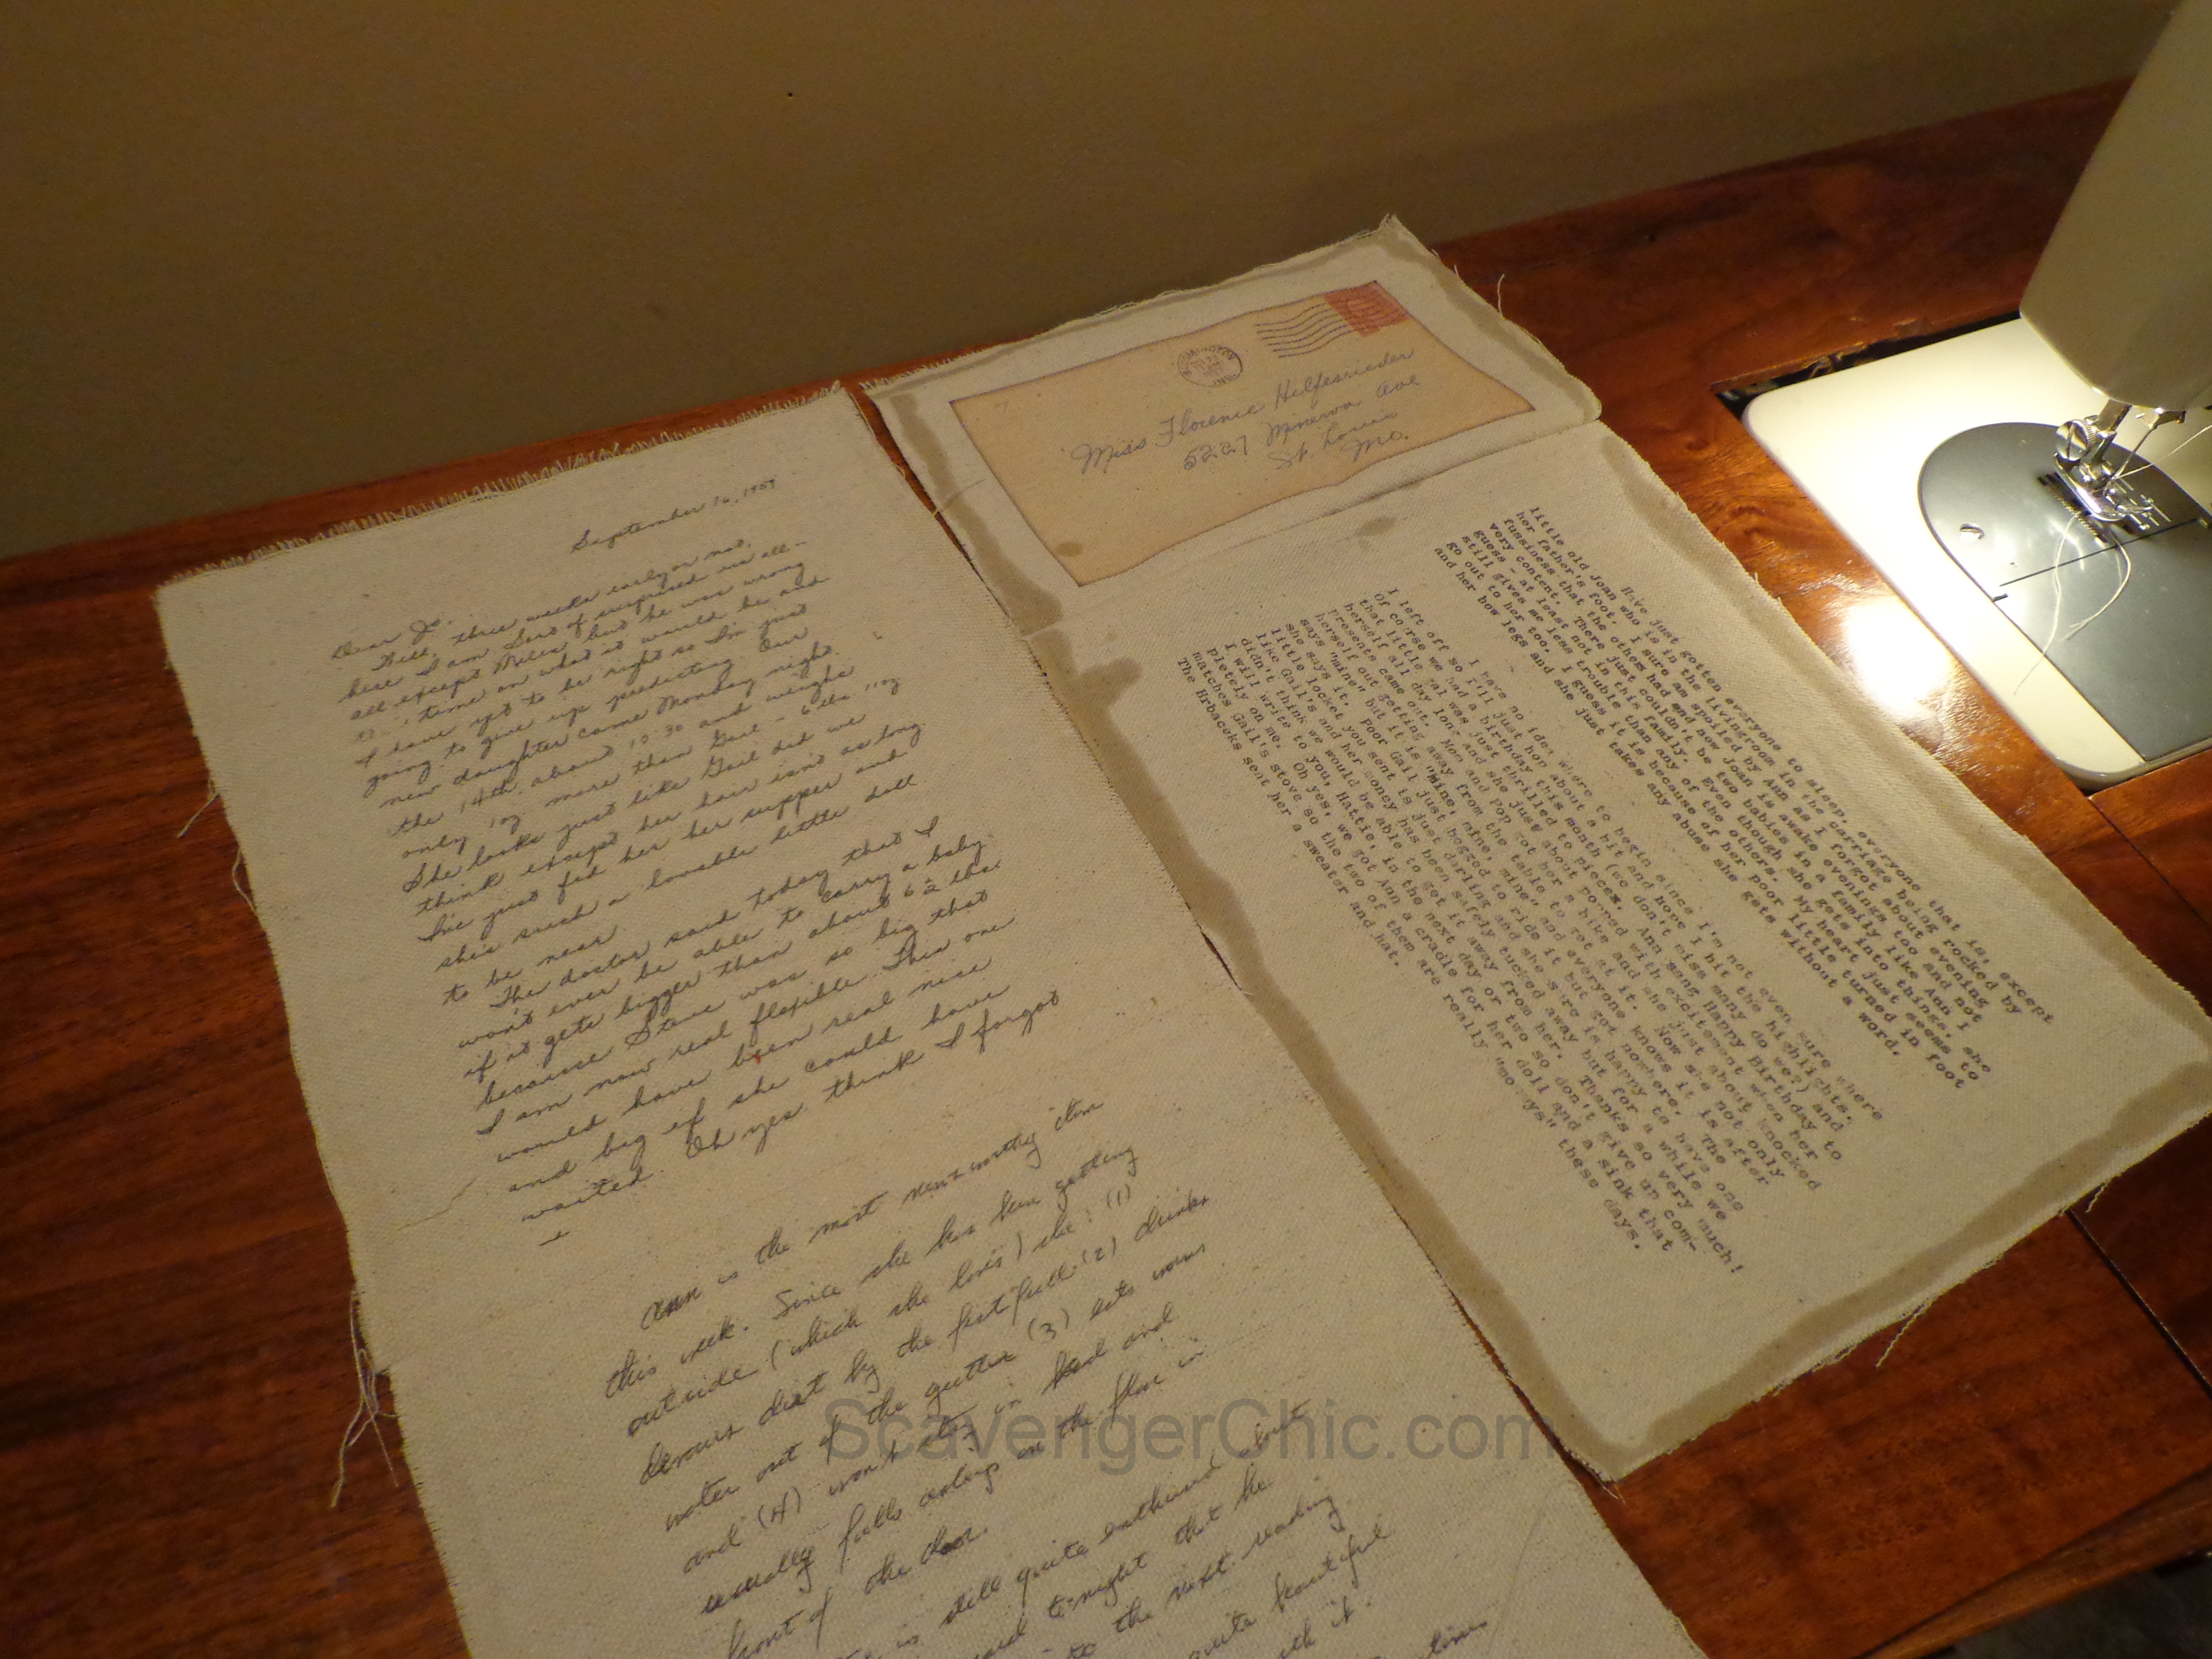 September 16, 1959
Dear Jo,
Well, three weeks early or not,
here I am. Sort of surprised us all -
all except Miles, but he was wrong
time on what it would be and
I have yet to be right so I'm just
going to give up predicting. Our
new daughter came Monday night
the 14th about 10:30 and weighs
only 1 oz more than Gail - 6 lbs 11 oz
She looks just like Gail did we
think except her hair isn't as long.
I've just fed her her supper and
she's such a lovable little doll
to be near
The doctor said today that I
won't ever be able to carry a baby
if it gets bigger than about 6 1/2 lbs.
because Steve was so big that
I am now real flexible. This one
would have been real nice
and big if she could have
waited. Oh yes. think I forgot
Ann is the most newsworthy item
this week. Since she has been getting
outside (which she loves) she: (1)
devours dirt by the fistfull (2) drinks
water out of the gutter (3) eats worms
and (4) won't stay in bed and
usually falls asleep on the floor in
front of the door.
is still quite enthused about
tonight that he
to the next reading
quite beautiful
with it.
times
Miss Florence Helfesrieder
5227 Minerva Ave
St. Louis
Mo.
Have just gotten everyone to sleep, everyone that is, except
little old Joan who is in the livingroom in the carriage being rocked by
her father's foot. I sure am spoiled by Ann as I forgot about evening
fussiness that the others had and now Joan is awake evenings too and not
very content. There just couldn't be two babies in a family like Ann I
guess - at least not in this family. Even though she gets into things, she
still gives me less trouble than any of the others. My heart just seems to
go out to her too. I guess it is because of her poor little turned in foot
and her bow legs and she just takes any abuse she gets without a word.
I have no idea where to begin since I'm not even sure where
I left off so I'll just hop about a bit and hope I hit the highlights.
Of course we had a birthday this month (we don't miss many do we?) and
that little gal was just thrilled to pieces. Ann sang Happy Birthday to
herself all day long and she just about popped with excitement when her
presents came out. Mom and Pop got her a bike and she just about knocked
herself out getting away from the table to get at it. Now she not only
says "mine" but it is "Mine, mine, mine" and everyone knows it is after
she says it. Poor Gail just begged to ride it but got nowhere. The
little locket you sent is just darling and she sure is happy to have one
like Gail's and her money has been safely tucked away but for a while we
didn't think we would be able to get it away from her. Thanks so very much!
I will write to you, Hattie, in the next day or two so don't give up com-
pletely on me. Oh yes, we got Ann a cradle for her doll and a sink that
matches Gail's stove so the two of them are really "so 
The Hrbaceks sent her a sweater and hat. these days.
ScavengerChic.com